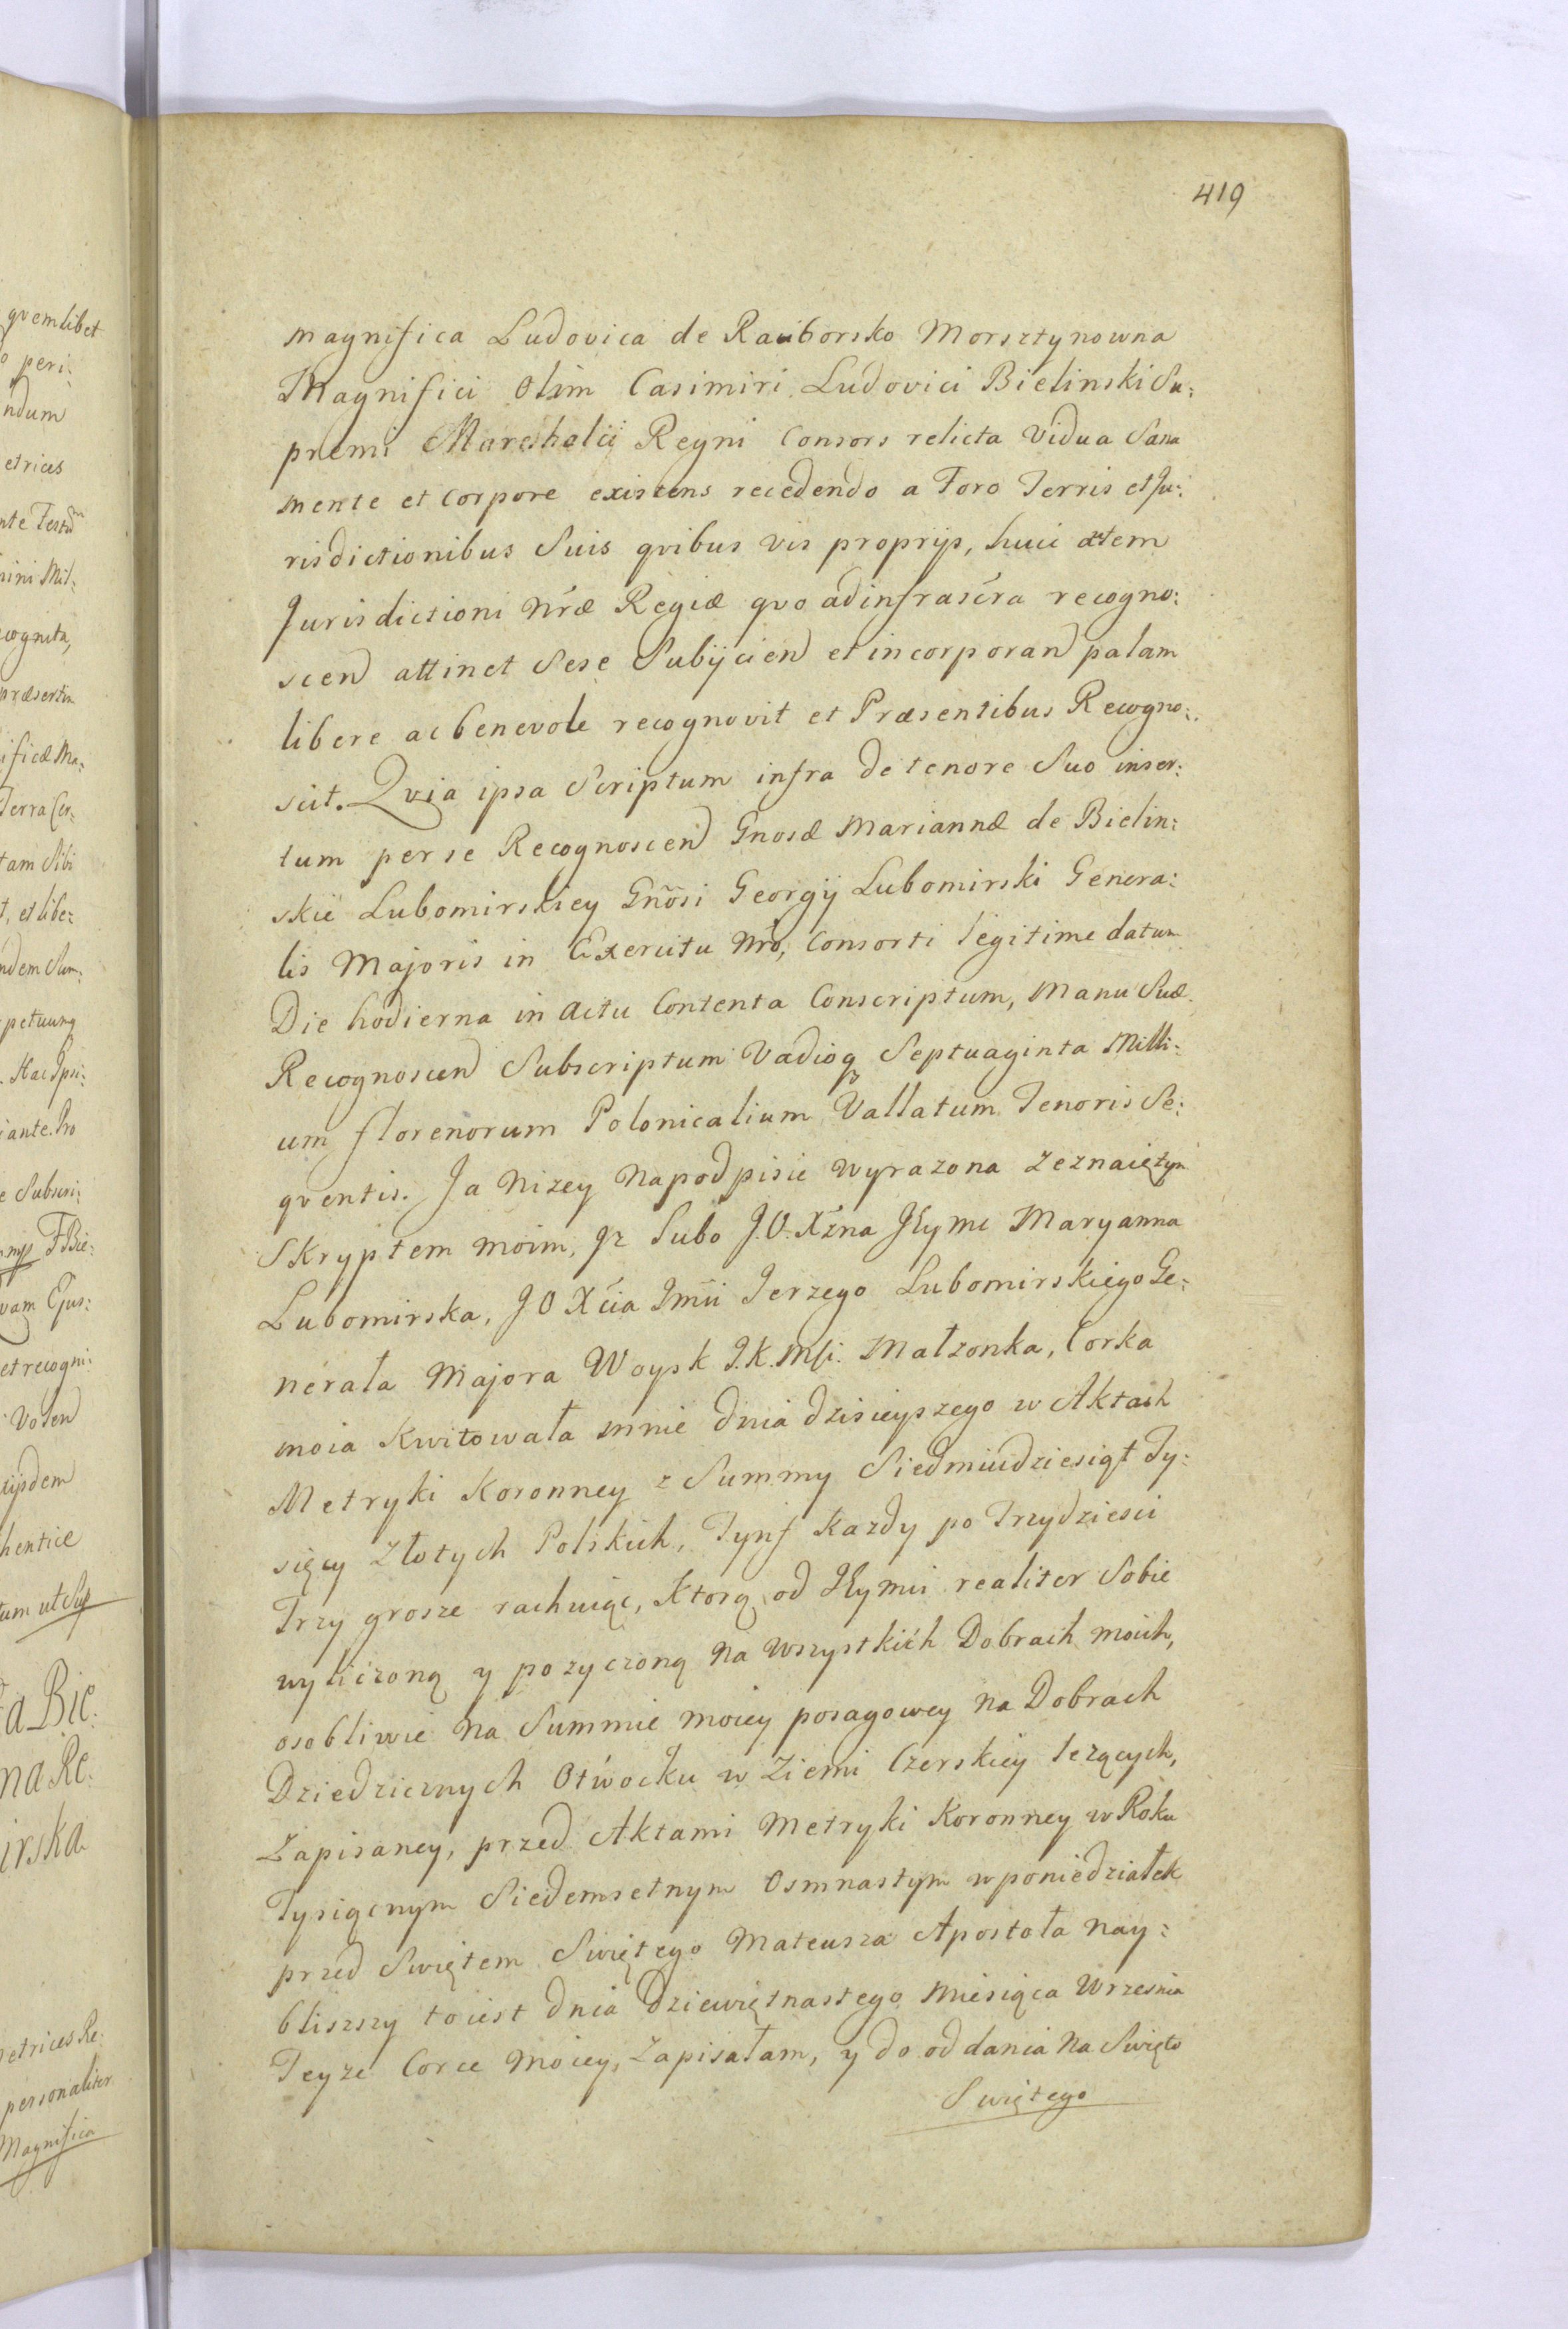 419
magnifica Ludovica de Raciborsko Morsztynowna
Magnifici Olim Casimiri Ludovici Bielinski Su:
premi Mareshalci Regni Consors relicta Vidua Sana
mente et Corpore existens recedendo a Foro Terris et Ju:
risdictionibus Suis qvibus vis proprijs, huic atem
Jurisdictioni nræ Regiæ qvo ad infrascra recogno:
scend attinet Sese Subijciend et incorporand palam
libere ac benevole recognovit et Præsentibus Recogno:
scit. Qvia ipsa Scriptum infra de tenore Suo inser:
tum per se Recognoscend Gnosæ Mariannæ de Bielin:
skie Lubomirskiey Gnosi Georgij Lubomirski Genera:
lis Majoris in Exercitu Nro, Consorti legitime datum
Die hodierna in Actu Contenta Conscriptum, Manu Suæ
Recognoscend Subscriptum Vadioq Septuaginta Milli:
um florenorum Polonicalium Vallatum Tenoris Se:
qventis. Ja Nizey Napodpisie wyrazona zeznaię tym
Skryptem moim, Jz Lubo J.O. Xzna JEymc Maryanna
Lubomirska, J O Xcia Jmci Jerzego Lubomirskiego Ge:
nerała Majora Woysk J.K.Msci. Małzonka, Corka
moia Kwitowała mnie dnia dzisieyszego w Aktach
Metryki Koronney z Summy Siedmiudziesiąt Ty:
sięcy Złotych Polskich, Tynf Kazdy po Trzydziesci
Trzy grosze rachuiąc, Ktorą od JEymci realiter Sobie
wyliczoną y pozyczoną na wszystkich Dobrach moich,
osobliwie na Summie moiey posagowey na Dobrach
Dziedzicznych Otwocku w Ziemi Czerskiey lezących,
Zapisaney, przed Aktami Metryki Koronney w Roku
Tysiącnym Siedemsetnym Osmnastym w poniedziałek
przed Swiętem Swiętego Mateusza Apostoła nay:
bliszszy toiest dnia Dziewiętnastego Miesiąca Wrzesnia
Teyze Corce moiey, Zapisałam, y do oddania na Swięto
Swiętego
qvemlibet
peri:
ndum
etrices
nini Mil:
cognita,
præsertim
ificæ Ma:
Terra Cer:
tam Sibi
t, et libe:
ndem Sum:
petuung
. Hac Jpsi:
iante. Pro
e Subscri:
mp FBie:
vam Ejus:
et recogni:
Volen
ijsdem
hentice
tum ut Sup
a Bie:
na Re:
irska
etrices Re:
personaliter
Magnifica